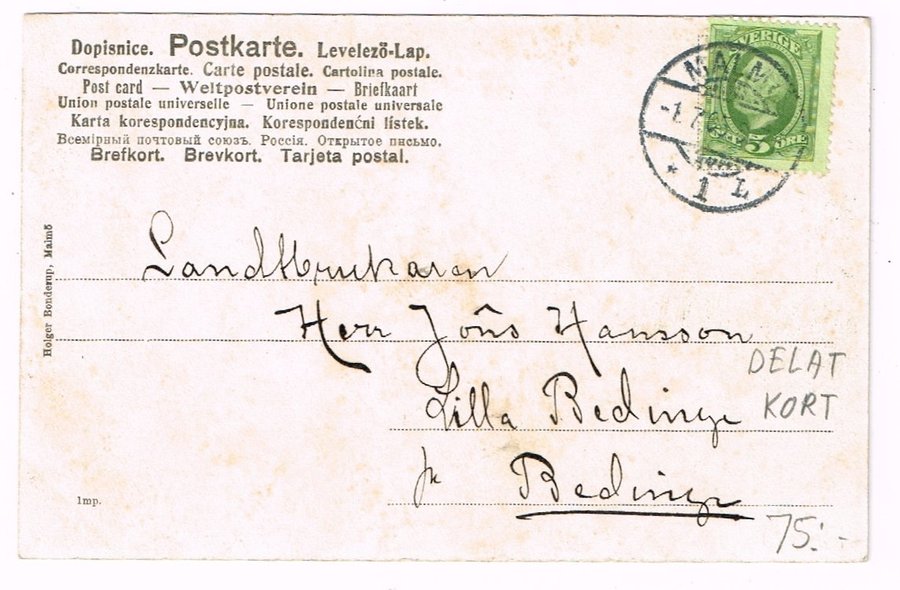 Dopisnice. Postkarte. Levelező-Lap.
Correspondenzkarte. Carte postale. Cartolina postale.
Post card — Weltpostverein — Briefkaart
Union postale universelle — Unione postale universale
Karta korespondencyjna. Korespondenční lístek.
Всемірный почтовый союзъ. Россія. Открытое письмо.
Brefkort. Brevkort. Tarjeta postal.
SVERIGE
5
ÖRE
MALMÖ
1 L
Landtbrukaren
Herr Jöns Hansson
Lilla Bedinge
pr Bedinge
DELAT
KORT
75:-
Holger Bonderup, Malmö
Imp.